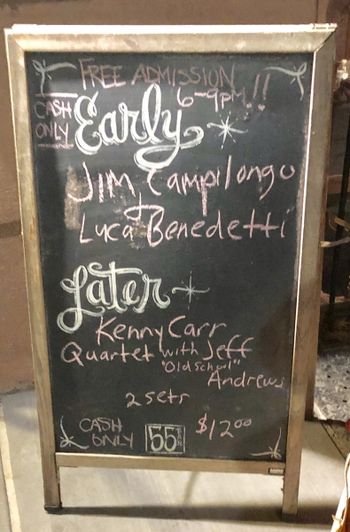 FREE ADMISSION
CASH ONLY
Early 6-9pm!!
Jim Campilongo
Luca Benedetti
Later
Kenny Carr
Quartet with Jeff
"Old School"
Andrews
2 sets
CASH ONLY
55
$12.00